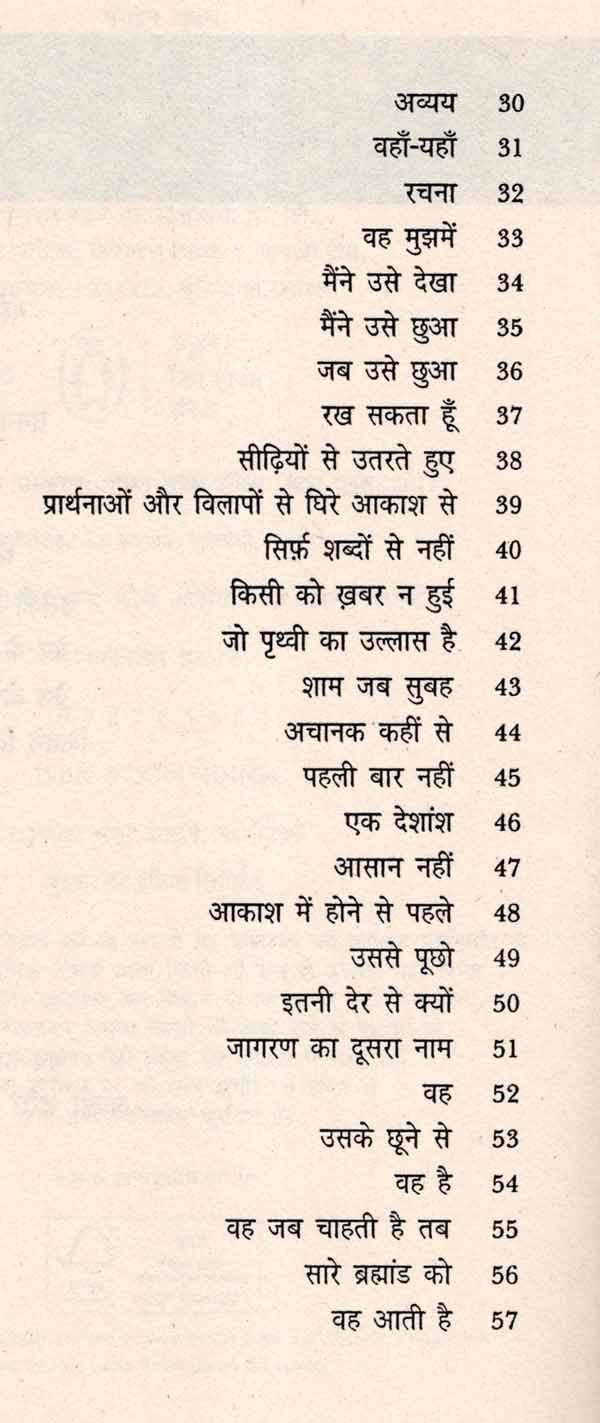 अव्यय 30
वहाँ-यहाँ 31
रचना 32
वह मुझमें 33
मैंने उसे देखा 34
मैंने उसे छुआ 35
जब उसे छुआ 36
रख सकता हूँ 37
सीढ़ियों से उतरते हुए 38
प्रार्थनाओं और विलापों से घिरे आकाश से 39
सिर्फ़ शब्दों से नहीं 40
किसी को ख़बर न हुई 41
जो पृथ्वी का उल्लास है 42
शाम जब सुबह 43
अचानक कहीं से 44
पहली बार नहीं 45
एक देशांश 46
आसान नहीं 47
आकाश में होने से पहले 48
उससे पूछो 49
इतनी देर से क्यों 50
जागरण का दूसरा नाम 51
वह 52
उसके छूने से 53
वह है 54
वह जब चाहती है तब 55
सारे ब्रह्मांड को 56
वह आती है 57